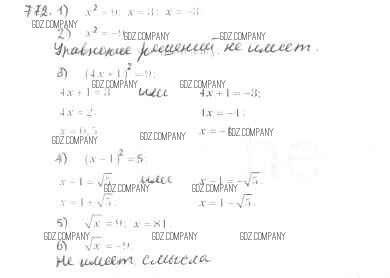 772. 1) x² = 9; x = 3; x = -3;
GDZ.COMPANY
2) x² = -9
GDZ.COMPANY GDZ.COMPANY
Уравнение решений не имеет.
3) (4x + 1)² = 9;
GDZ.COMPANY GDZ.COMPANY
4x + 1 = 3 или 4x + 1 = -3;
4x = 2 4x = -4;
x = 0,5 x = -1
GDZ.COMPANY GDZ.COMPANY
4) (x - 1)² = 5;
GDZ.COMPANY GDZ.COMPANY
x - 1 = √5 или x - 1 = -√5.
GDZ.COMPANY GDZ.COMPANY
x = 1 + √5 x = 1 - √5.
5) √x = 9; x = 81
GDZ.COMPANY GDZ.COMPANY GDZ.COMPANY
6) √x = -9
GDZ.COMPANY
Не имеет смысла